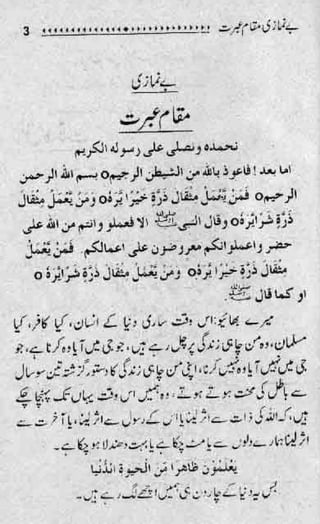 بے نمازی مقام عبرت 3
بے نمازی
مقام عبرت
نحمدہ ونصلی علی رسولہ الکریم
اما بعد! فاعوذ باللہ من الشیطٰن الرجیم٥ بسم اللہ الرحمن
الرحیم٥ فَمَنْ یَّعْمَلْ مِثْقَالَ ذَرَّةٍ خَیْرًا یَّرَهٗ٥ وَمَنْ یَّعْمَلْ مِثْقَالَ
ذَرَّةٍ شَرًّا یَّرَهٗ٥ وقال النبی ﷺ الا فعملو وانتم من اللہ علی
حضر واعملوانکم معروضون علی اعمالکم فَمَنْ یَّعْمَلْ
مِثْقَالَ ذَرَّةٍ خَیْرًا یَّرَهٗ٥ وَمَنْ یَّعْمَلْ مِثْقَالَ ذَرَّةٍ شَرًّا یَّرَهٗ٥
او کما قال ﷺ
میرے بھائیو: اس وقت ساری دنیا کے انسان، کیا کافر، کیا
مسلمان، وہ من چاہی زندگی پر چل رہے ہیں، جو جی میں آیا وہ کرنا ہے، جو
جی میں نہیں آیا وہ نہیں کرنا، اپنی من چاہی زندگی کا دستور گزشتہ تین سو سال
سے باطل کی محنت ہوتے ہوتے، وہ ہمیں اس وقت یہاں تک پہنچا چکے
ہیں، کہ اللہ کی ذات سے اثر لینا یا اس کے رسول سے اثر لینا، یا آخرت سے
اثر لینا ہمارے دلوں سے یا مٹ چکا ہے یا بہت دھندلا ہو چکا ہے۔
یَعْلَمُوْنَ ظَاهِرًا مِّنَ الْحَیٰوةِ الدُّنْیَا
بس یہ دنیا کے چار دن ہی ہمیں اچھے لگ رہے ہیں۔